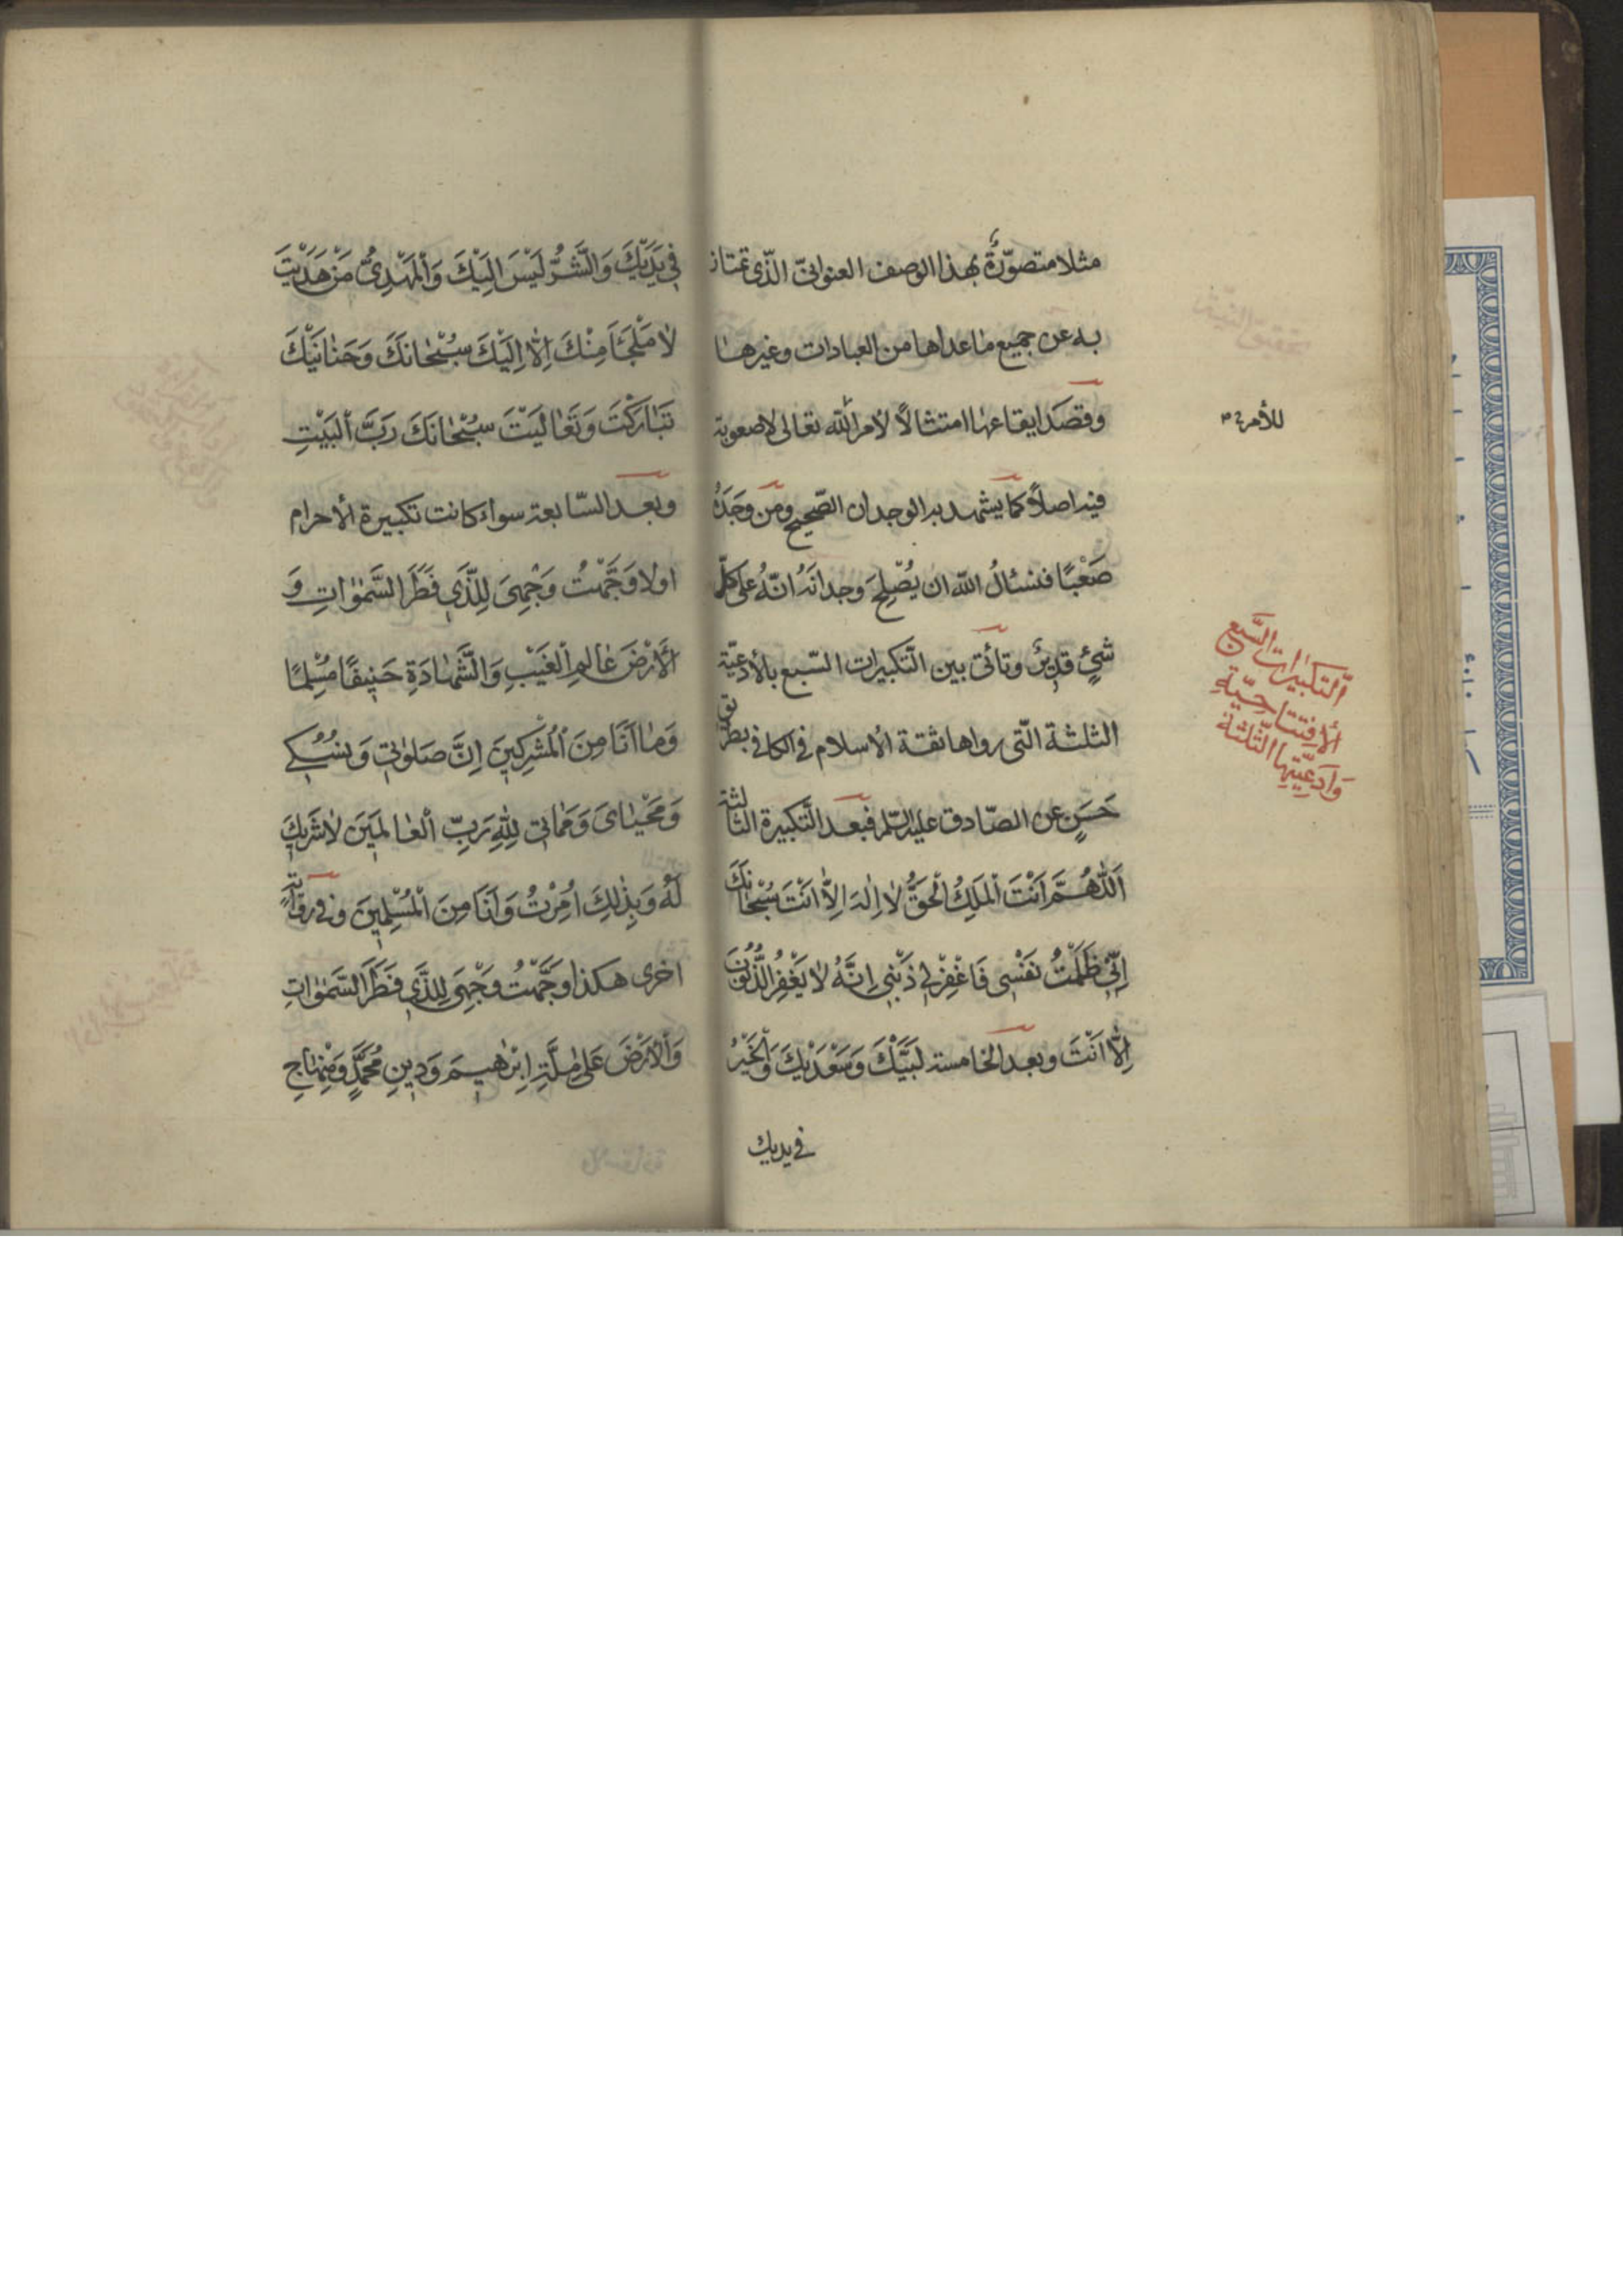 مثلا متصوّرةٌ بهذا الوصف العنوانىّ الّذى تمتاز
به عن جميع ماعداها من العبادات وغيرها
وقصد ايقاعها امتثالاً لامر الله تعالى لاصعوبة
فيه اصلاً كما يشهد به الوجدان الصّحيح ومن وجَدَهُ
صَعْبًا فنسئالُ الله ان يُصْلِحَ وجدانَهُ انّهُ على كلّ
شئٍ قديرٌ وتأتى بين التّكبيرات السّبع بالأدعيّة
الثلثة الّتى رواها ثقة الاسلام فى الكافى بطريق
حَسَنٍ عن الصّادق عليه السّلم فبعد التّكبيرة الثالثة
اَللّٰهُمَّ اَنْتَ اْلمَلِكُ الْحَقُّ لاٰ اِلٰهَ اِلاّٰ اَنْتَ سُبْحٰانَكَ
اِنّىِ ظَلَمْتُ نَفْسْى فَاغْفِرْلىِ ذَنْبىِ اِنَّهُ لاٰ يَغْفِرُ الذُّنُوُبَ
اِلاّٰ اَنْتَ وبعد الخامسة لَبَيَّكَ وَسَعْدَيْكَ وَاْلخَيْرُ
فى يديك
للأمر
اَلتكبيٰرات السَّبع
الأفتتاحيّة
وَادعِيَتِها الثّلثة
فىِ يَدَيْكَ وَالشَّرُّ لَيْسَ اِلَيْكَ وَاْلمَهْدِىُّ مَنْ هَدَيْتَ
لاٰ مَلْجَأَ مِنْكَ اِلاّٰ اِلَيْكَ سُبْحٰانَكَ وَحَنٰانَيْكَ
تَبٰارَكْتَ وَتَعٰالَيْتَ سُبْحٰانَكَ رَبَّ اْلبَيْتِ
وبعد السّابعة سواء كانت تكبيرة الأحرام
اولا وَجَّهْتُ وَجْهِىَ لِلَّذىِ فَطَرَ السَّمٰوٰاتِ وَ
اْلأَرْضَ عٰالِمِ الْغَيْبِ وَالشَّهٰادَةِ حَنيِفًا مُسْلِمًا
وَمٰا اَنَا مِنَ الْمُشْرِكيِنَ اِنَّ صَلوٰتىِ وَنُسُكىِ
وَمَحْيٰاىَ وَمَمٰاتىِ لِلّٰهِ رَبِّ اْلعٰالَميَنَ لاٰشَريِكَ
لَهُ وَبِذٰلِكَ اُمِرْتُ وَاَنَا مِنَ الْمُسْلِميِنَ وفى روايةٍ
اخرى هكذا وَجَّهْتُ وَجْهِىَ لِلَّذىِ فَطَرَ السَّمٰوٰاتِ
وَاْلاَرْضَ عَلىٰ مِلَّةِ اِبْرٰهيِمَ وَديِنِ مُحَمَّدٍ وَمِنْهٰاجِ